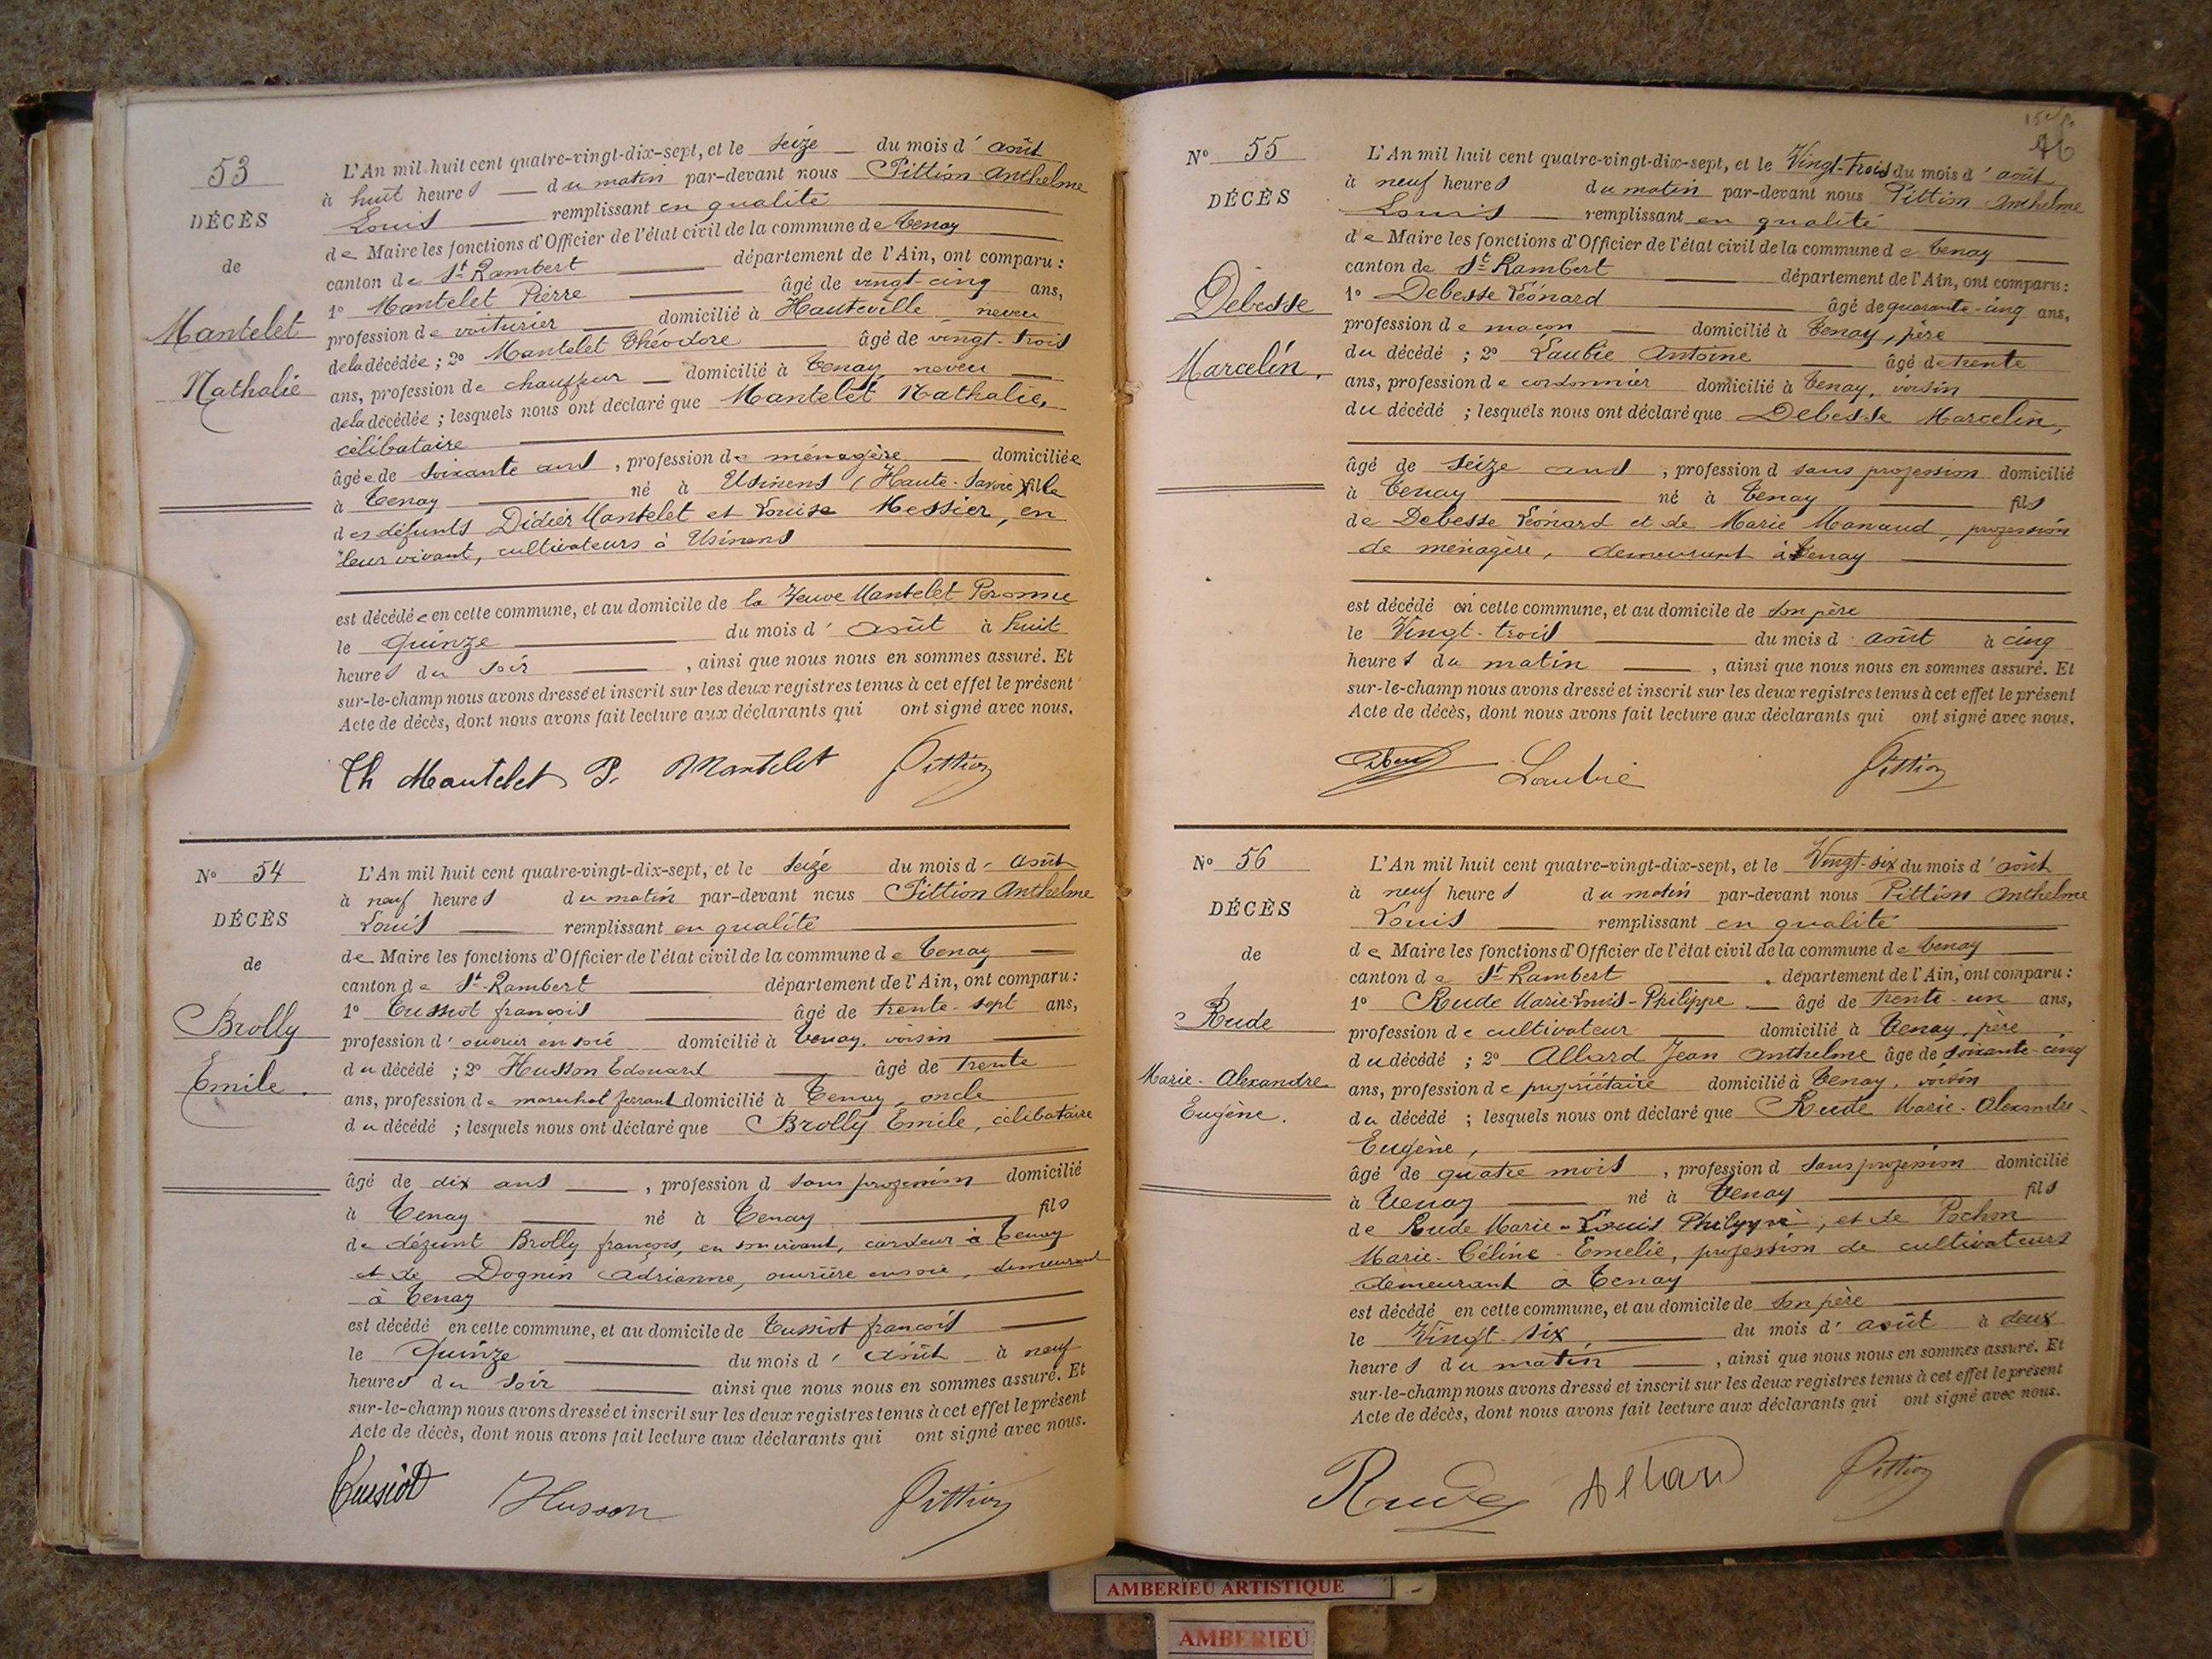 53
DÉCÈS
de
Mantelet
Nathalie
L'An mil huit cent quatre-vingt-dix-sept, et le seize du mois d' août
à huit heures du matin par-devant nous Pittion Anthelme
Louis remplissant en qualité
de Maire les fonctions d'Officier de l'état civil de la commune de Tenay
canton de St Rambert département de l'Ain, ont comparu :
1° Mantelet Pierre âgé de vingt-cinq ans,
profession de voiturier domicilié à Hauteville neveu
de la décédée ; 2° Mantelet Théodore âgé de vingt-trois
ans, profession de chauffeur domicilié à Tenay, neveu
de la décédée ; lesquels nous ont déclaré que Mantelet Nathalie,
célibataire
âgée de soixante ans , profession de ménagère domiciliée
à Tenay né à Usinens (Haute-Savoie) fille
des défunts Didier Mantelet et Louise Messier, en
leur vivant, cultivateurs à Usinens
est décédée en cette commune, et au domicile de la Veuve Mantelet
le Quinze du mois d' août à huit
heures du soir , ainsi que nous nous en sommes assuré. Et
sur-le-champ nous avons dressé et inscrit sur les deux registres tenus à cet effet le présent
Acte de décès, dont nous avons fait lecture aux déclarants qui ont signé avec nous.
Th Mantelet P. Mantelet Pittion
N° 54
DÉCÈS
de
Brolly
Emile.
L'An mil huit cent quatre-vingt-dix-sept, et le seize du mois d' août
à neuf heures du matin par-devant nous Pittion Anthelme
Louis remplissant en qualité
de Maire les fonctions d'Officier de l'état civil de la commune de Tenay
canton de St-Rambert département de l'Ain, ont comparu :
1° Tussiot françois âgé de trente-sept ans,
profession d' ouvrier en soie domicilié à Tenay, voisin
du décédé ; 2° Husson Edouard âgé de trente
ans, profession de marechal ferrant domicilié à Tenay, oncle
du décédé ; lesquels nous ont déclaré que Brolly Emile, célibataire
âgé de dix ans , profession d sans profession domicilié
à Tenay né à Tenay fils
de défunt Brolly françois, en son vivant, cardeur à Tenay
et de Dognin Adrianne, ouvrière en soie, demeurant
à Tenay
est décédé en cette commune, et au domicile de Tussiot françois
le Quinze du mois d' août à neuf
heures du soir ainsi que nous nous en sommes assuré. Et
sur-le-champ nous avons dressé et inscrit sur les deux registres tenus à cet effet le présent
Acte de décès, dont nous avons fait lecture aux déclarants qui ont signé avec nous.
Tussiot Husson Pittion
46
N° 55
DÉCÈS
Debesse
Marcelin.
L'An mil huit cent quatre-vingt-dix-sept, et le Vingt-trois du mois d' août
à neuf heures du matin par-devant nous Pittion Anthelme
Louis remplissant en qualité
de Maire les fonctions d'Officier de l'état civil de la commune de Tenay
canton de St Rambert département de l'Ain, ont comparu :
1° Debesse Léonard âgé de quarante-cinq ans,
profession de maçon domicilié à Tenay, père
du décédé ; 2° Laubie Antoine âgé de trente
ans, profession de cordonnier domicilié à Tenay, voisin
du décédé ; lesquels nous ont déclaré que Debesse Marcelin,
âgé de seize ans , profession d sans profession domicilié
à Tenay né à Tenay fils
de Debesse Léonard et de Marie Manaud, profession
de ménagère, demeurant à Tenay
est décédé en cette commune, et au domicile de son père
le Vingt-trois du mois d' août à cinq
heures du matin , ainsi que nous nous en sommes assuré. Et
sur-le-champ nous avons dressé et inscrit sur les deux registres tenus à cet effet le présent
Acte de décès, dont nous avons fait lecture aux déclarants qui ont signé avec nous.
Laubie Pittion
N° 56
DÉCÈS
de
Rude
Marie-Alexandre
Eugène.
L'An mil huit cent quatre-vingt-dix-sept, et le Vingt-six du mois d' août
à neuf heures du matin par-devant nous Pittion Anthelme
Louis remplissant en qualité
de Maire les fonctions d'Officier de l'état civil de la commune de Tenay
canton de St-Rambert département de l'Ain, ont comparu :
1° Rude Marie-Louis-Philippe âgé de trente-un ans,
profession de cultivateur domicilié à Tenay, père
du décédé ; 2° Allard Jean Anthelme âgé de soixante-cinq
ans, profession de propriétaire domicilié à Tenay, voisin
du décédé ; lesquels nous ont déclaré que Rude Marie-Alexandre-
Eugène,
âgé de quatre mois , profession d sans profession domicilié
à Tenay né à Tenay fils
de Rude Marie-Louis Philippe, et de Pochon
Marie-Céline-Emelie, profession de cultivateurs
demeurant à Tenay
est décédé en cette commune, et au domicile de son père
le Vingt-six du mois d' août à deux
heures du matin , ainsi que nous nous en sommes assuré. Et
sur-le-champ nous avons dressé et inscrit sur les deux registres tenus à cet effet le présent
Acte de décès, dont nous avons fait lecture aux déclarants qui ont signé avec nous.
Rude Allard Pittion
AMBERIEU ARTISTIQUE
AMBERIEU